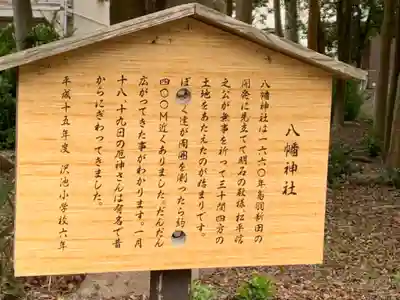 八幡神社
八幡神社は一六六〇年鳥羽新田の
開発に見立てて明石の殿様松平信
之公が無事を祈って三十間四方の
土地をあたえたのが始まりです。
ぼく達が周囲を測ったら約
四〇〇M近くありました。だんだん
広がってきた事がわかります。一月
十八、十九日の厄神さんは有名で昔
からにぎわってきました。
平成十五年度 沢池小学校六年